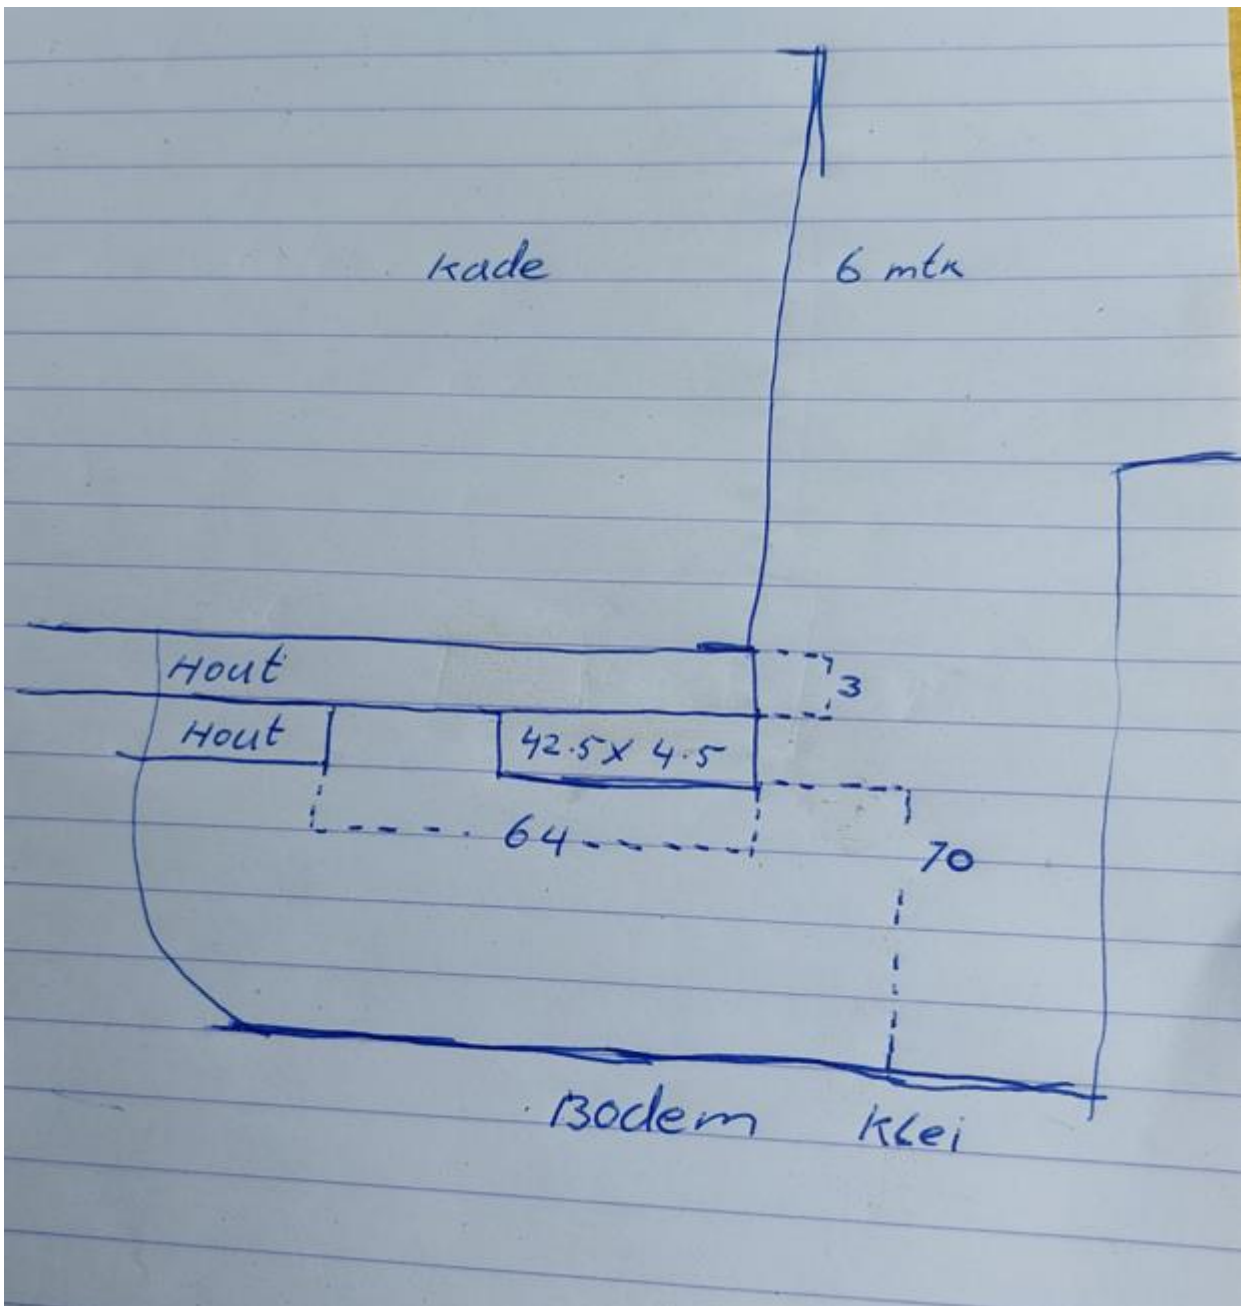 Kade
6 mtr
Hout
3
Hout
42.5 X 4.5
64
70
Bodem Klei